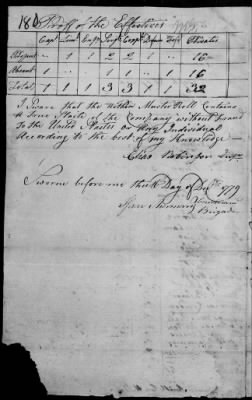 180 Proof of the Effectives
Capt Lieut Ensn Serjts Corpl Drum Fife Privates
Present – 1 1 2 2 1 – 16
Absent 1 – – 1 1 – 1 16
Total 1 1 1 3 3 1 1 32
I Swear that the Within Muster Roll Contains
A True State of the Company without fraud
To the United States or Any Individual
According to the best of my Knowledge
Sworn before me this Day of Decr 1779
Brigade